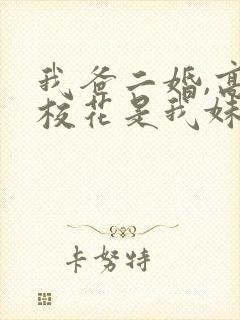 我爸二婚,高
校花是我妹
卡努特